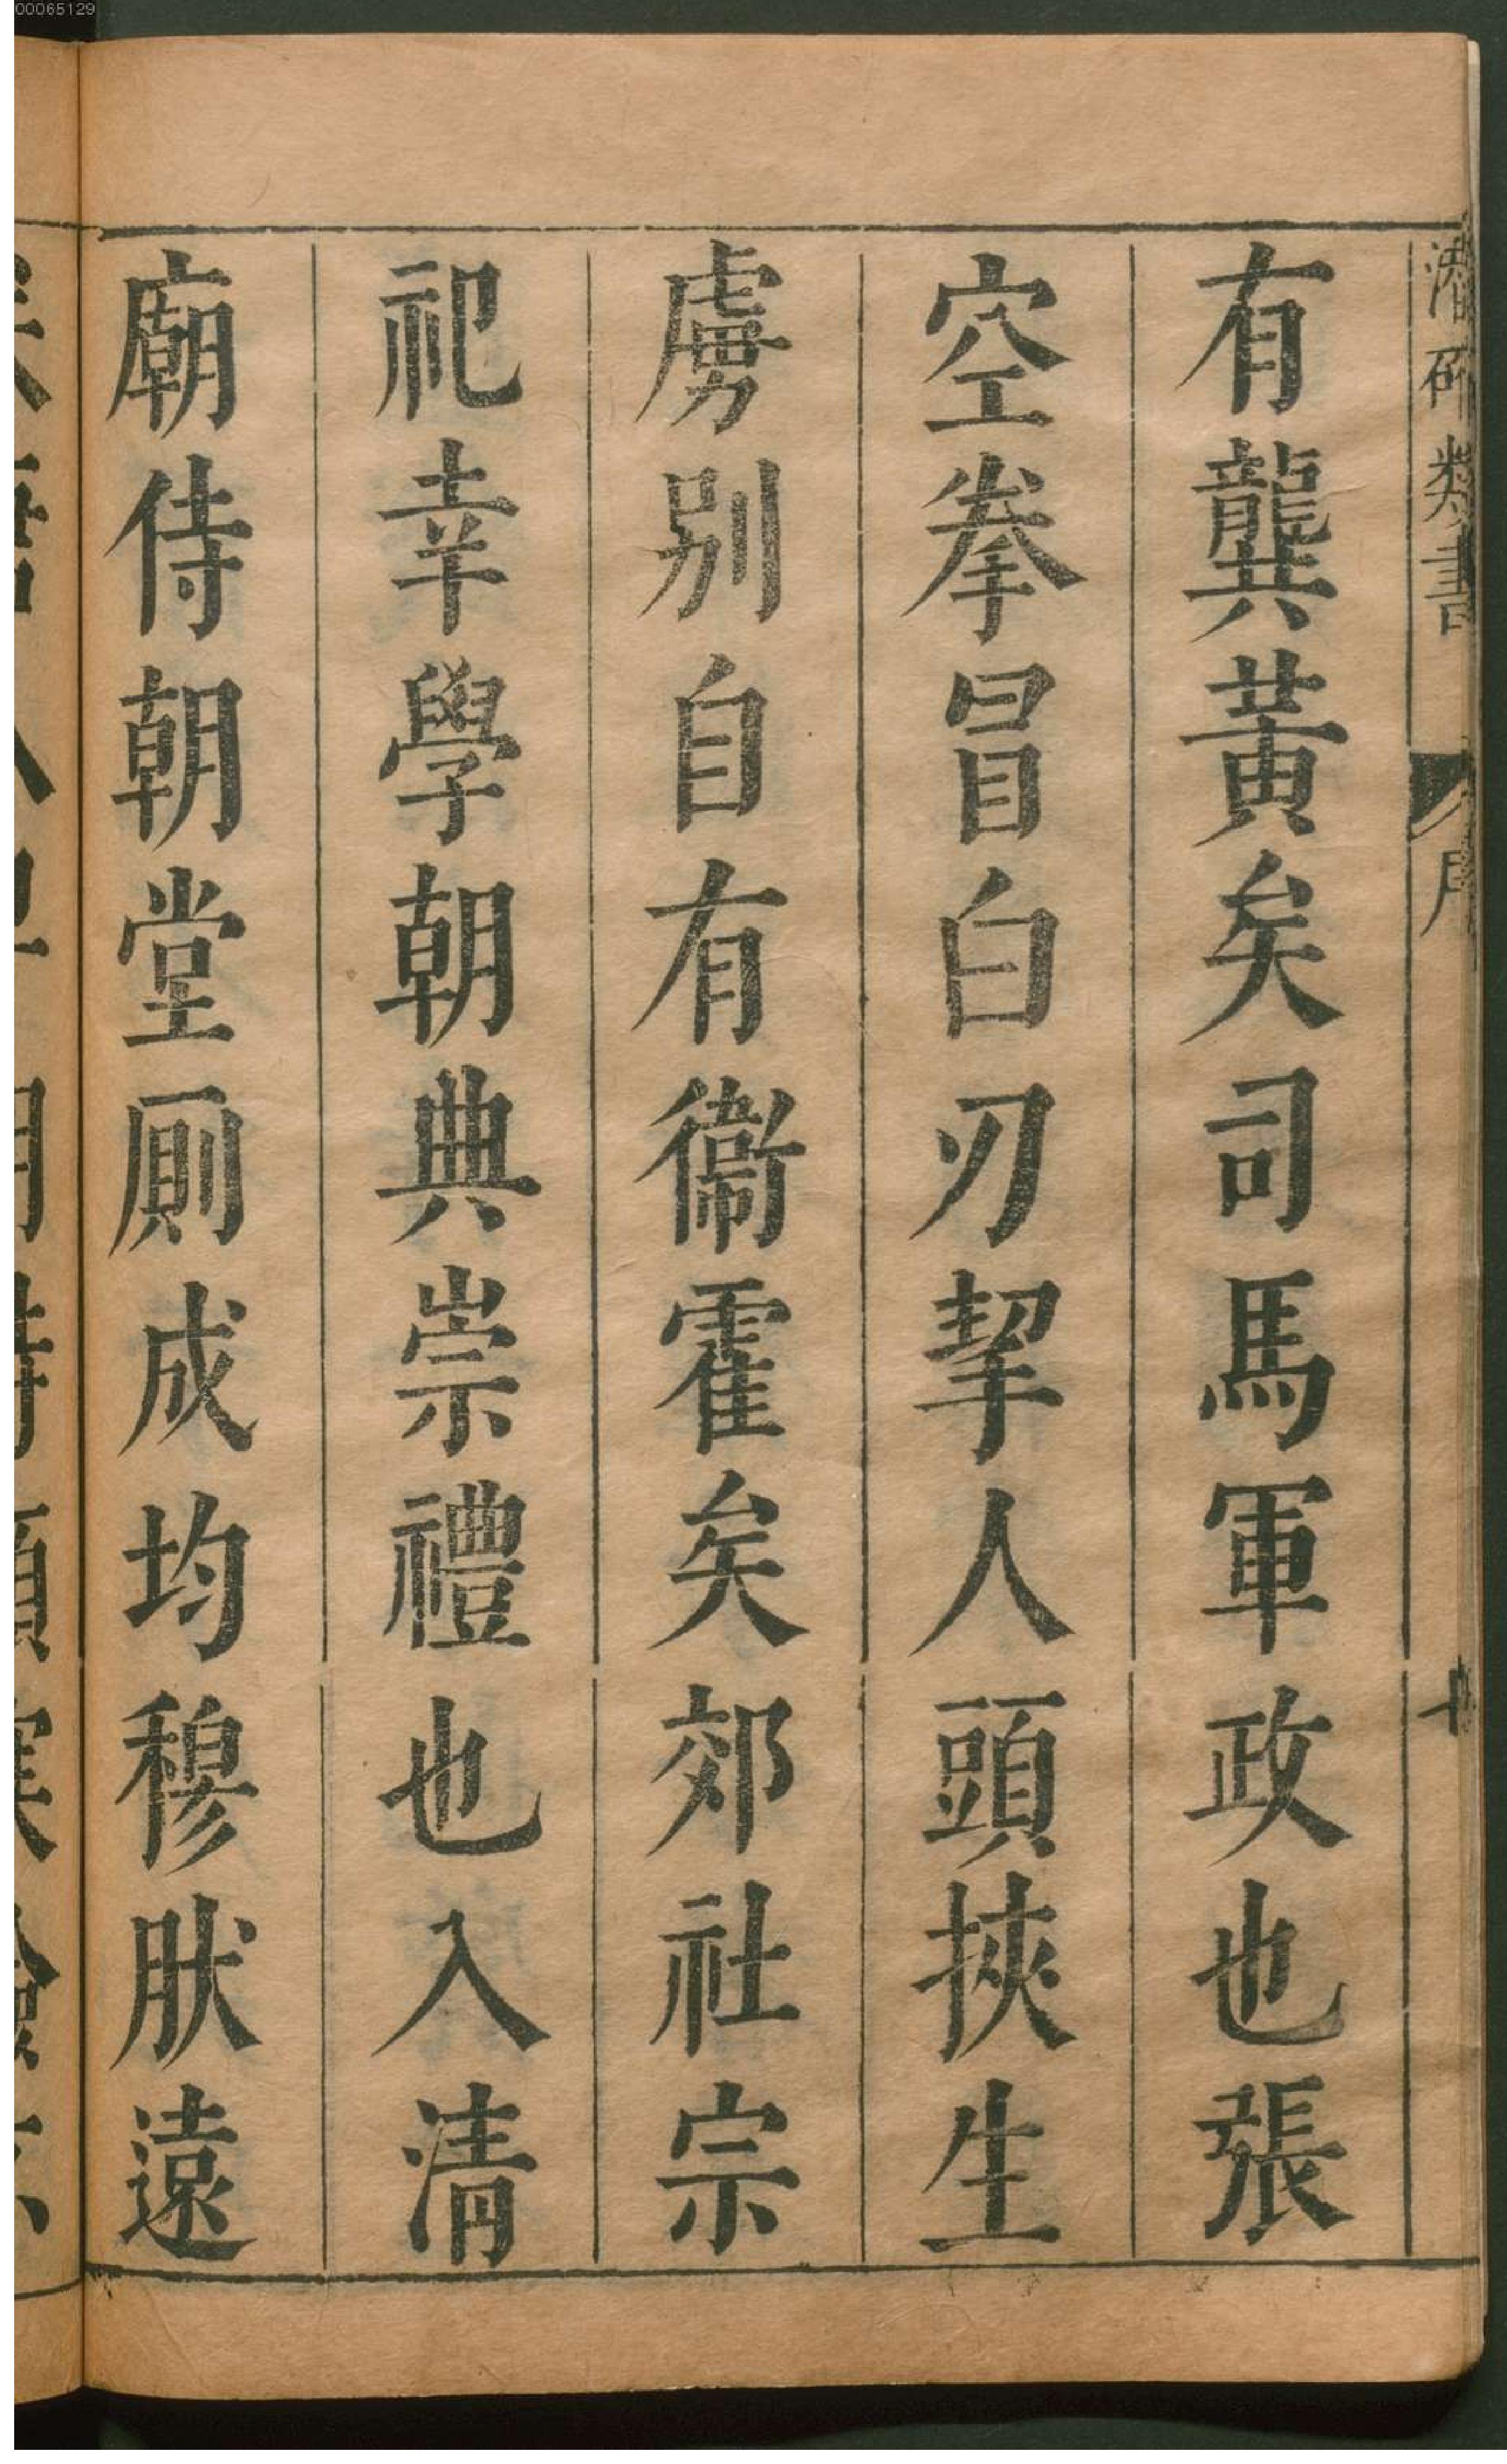 潛确類書
序
十
有龔黃矣司馬軍政也張
空拳冒白刃挈人頭挾生
虜別自有衞霍矣郊社宗
祀幸學朝典崇禮也入清
廟侍朝堂廁成均穆肰遠
00065129